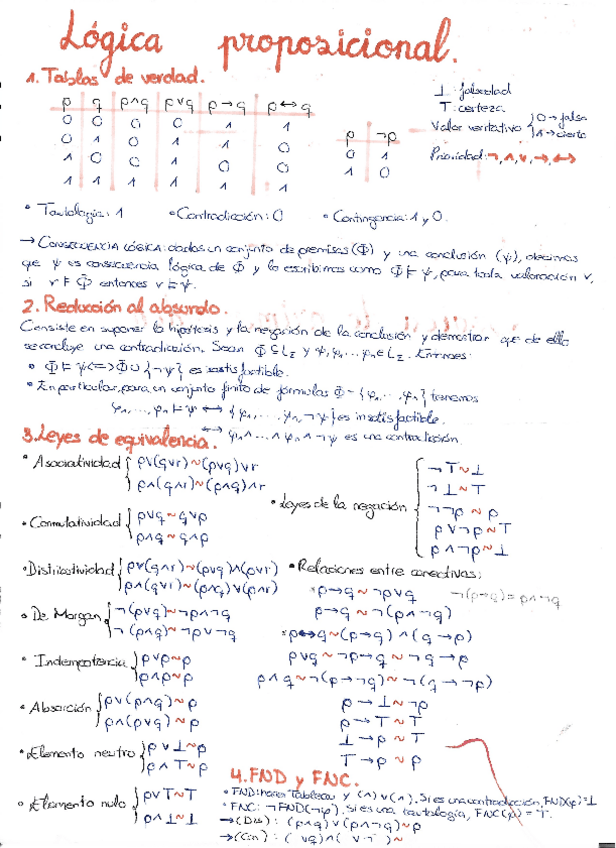 Lógica proposicional.
1. Tablas de verdad.
p q p∧q p∨q p→q p↔q
0 0 0 0 1 1
0 1 0 1 1 0
1 0 0 1 0 0
1 1 1 1 1 1
p ¬p
0 1
1 0
⊥: falsedad
T: certeza
Valor veritativo { 0→falso
1→cierto
Prioridad: ¬, ∧, ∨, →, ↔
• Tautología: 1 • Contradicción: 0 • Contingencia: 1 y 0.
→ CONSECUENCIA LÓGICA: dados un conjunto de premisas (Φ) y una conclusión (ψ), decimos
que ψ es consecuencia lógica de Φ y lo escribimos como Φ ⊨ ψ, para toda valoración v,
si v ⊨ Φ entonces v ⊨ ψ.
2. Reducción al absurdo.
Consiste en suponer la hipótesis y la negación de la conclusión y demostrar que de ello
se concluye una contradicción. Sean Φ ⊆ L_Σ y ψ, φ₁ ... φₙ ∈ L_Σ. Entonces:
• Φ ⊨ ψ <=> Φ ∪ {¬ψ} es insatisfactible.
• En particular, para un conjunto finito de fórmulas Φ = {φ₁, ..., φₙ} tenemos
φ₁, ..., φₙ ⊨ ψ ↔ {φ₁, ..., φₙ, ¬ψ} es insatisfactible.
↔ φ₁ ∧ ... ∧ φₙ ∧ ¬ψ es una contradicción
3. Leyes de equivalencia.
• Asociatividad { p∨(q∨r) ~ (p∨q)∨r
p∧(q∧r) ~ (p∧q)∧r
• Conmutatividad { p∨q ~ q∨p
p∧q ~ q∧p
• Distributividad { p∨(q∧r) ~ (p∨q)∧(p∨r)
p∧(q∨r) ~ (p∧q)∨(p∧r)
• De Morgan { ¬(p∨q) ~ ¬p∧¬q
¬(p∧q) ~ ¬p∨¬q
• Indempotencia { p∨p ~ p
p∧p ~ p
• Absorción { p∨(p∧q) ~ p
p∧(p∨q) ~ p
• Elemento neutro { p∨⊥ ~ p
p∧T ~ p
• Elemento nulo { p∨T ~ T
p∧⊥ ~ ⊥
• Leyes de la negación { ¬T ~ ⊥
¬⊥ ~ T
¬¬p ~ p
p∨¬p ~ T
p∧¬p ~ ⊥
• Relaciones entre conectivas:
*p→q ~ ¬p∨q ¬(p→q) = p∧¬q
p→q ~ ¬(p∧¬q)
*p↔q ~ (p→q)∧(q→p)
p∨q ~ ¬p→q ~ ¬q→p
p∧q ~ ¬(p→¬q) ~ ¬(q→¬p)
p→⊥ ~ ¬p
p→T ~ T
⊥→p ~ T
T→p ~ p
4. FND y FNC.
• FND: hacer Tableau y (∧)∨(∧). Si es una contradicción, FND(φ)=⊥
• FNC: ¬FND(¬φ). Si es una tautología, FNC(φ) = T.
→ (Dis): (p∧q)∨(p∧¬q) ~ p